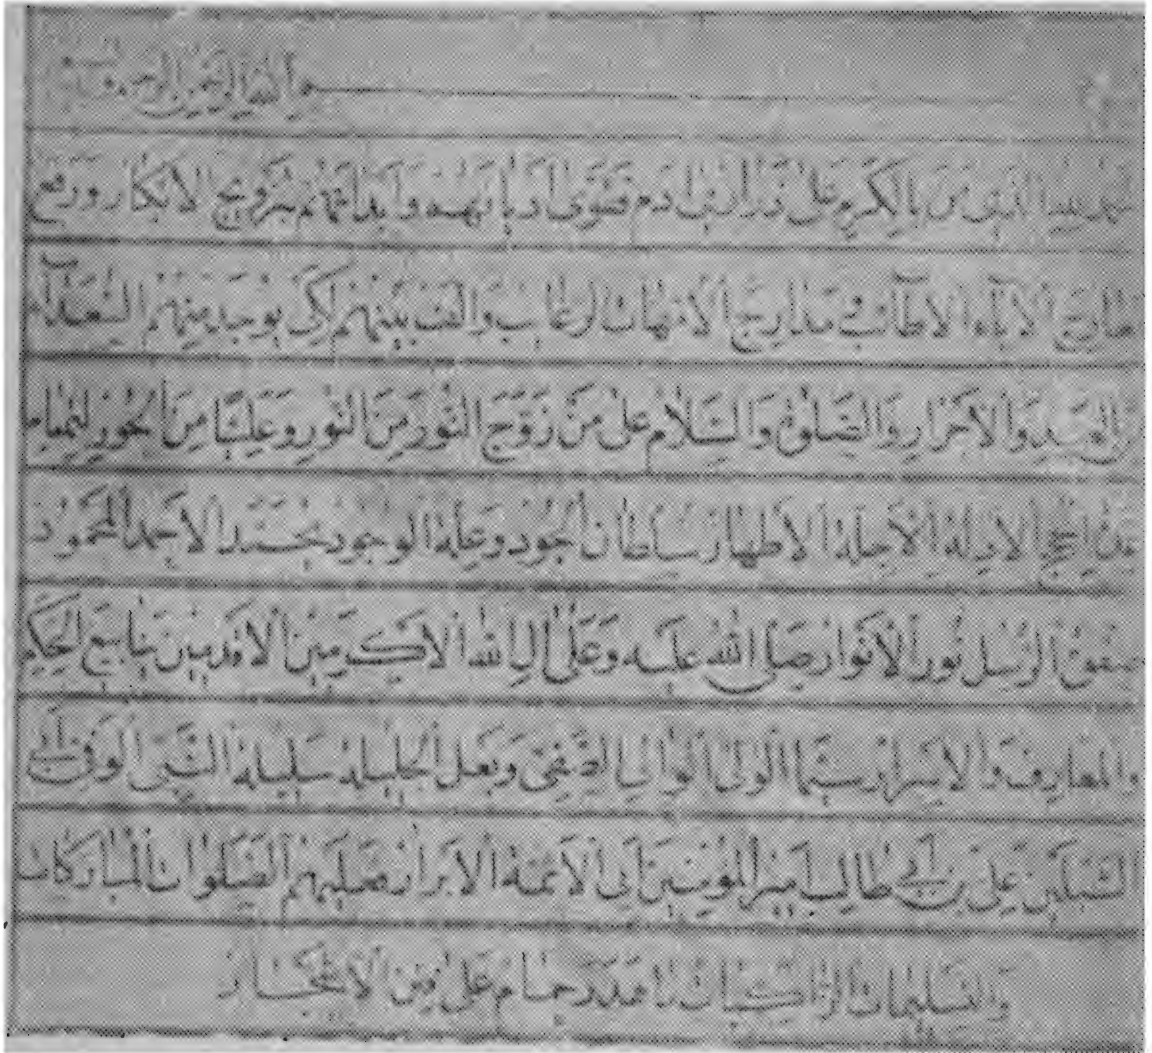 بسم الله الرحمن الرحيم و
الذى من بالكرم على ذرارى ادم وابدانهم بتزويج الابكار ورفع
معارج الآباء الاطائب فى مدارج الامهات الرغائب والف بينهم لكى يوجد منهم السعداء
العبيد والاحرار والصلوة والسلام على من زوج النور من النور وعليا من الحور
الادلة الاجلة الاطهار سلطان الجود وعلة الوجود محمد الاحمد المحمود
صفوة الرسل نور الانوار صلى الله عليه وعلى ال الله الاكرمين الاقدسين ينابيع الحكم
والمعارف والاسرار سيما الولى الوالى الصفى وبعل الجليلة سليلة النبى الوفى ابى
السبطين على بن ابى طالب امير المؤمنين ابى الائمة الابرار عليهم الصلوات المباركات
والتسليمات الزاكيات ما هدر حمام على الاشجار